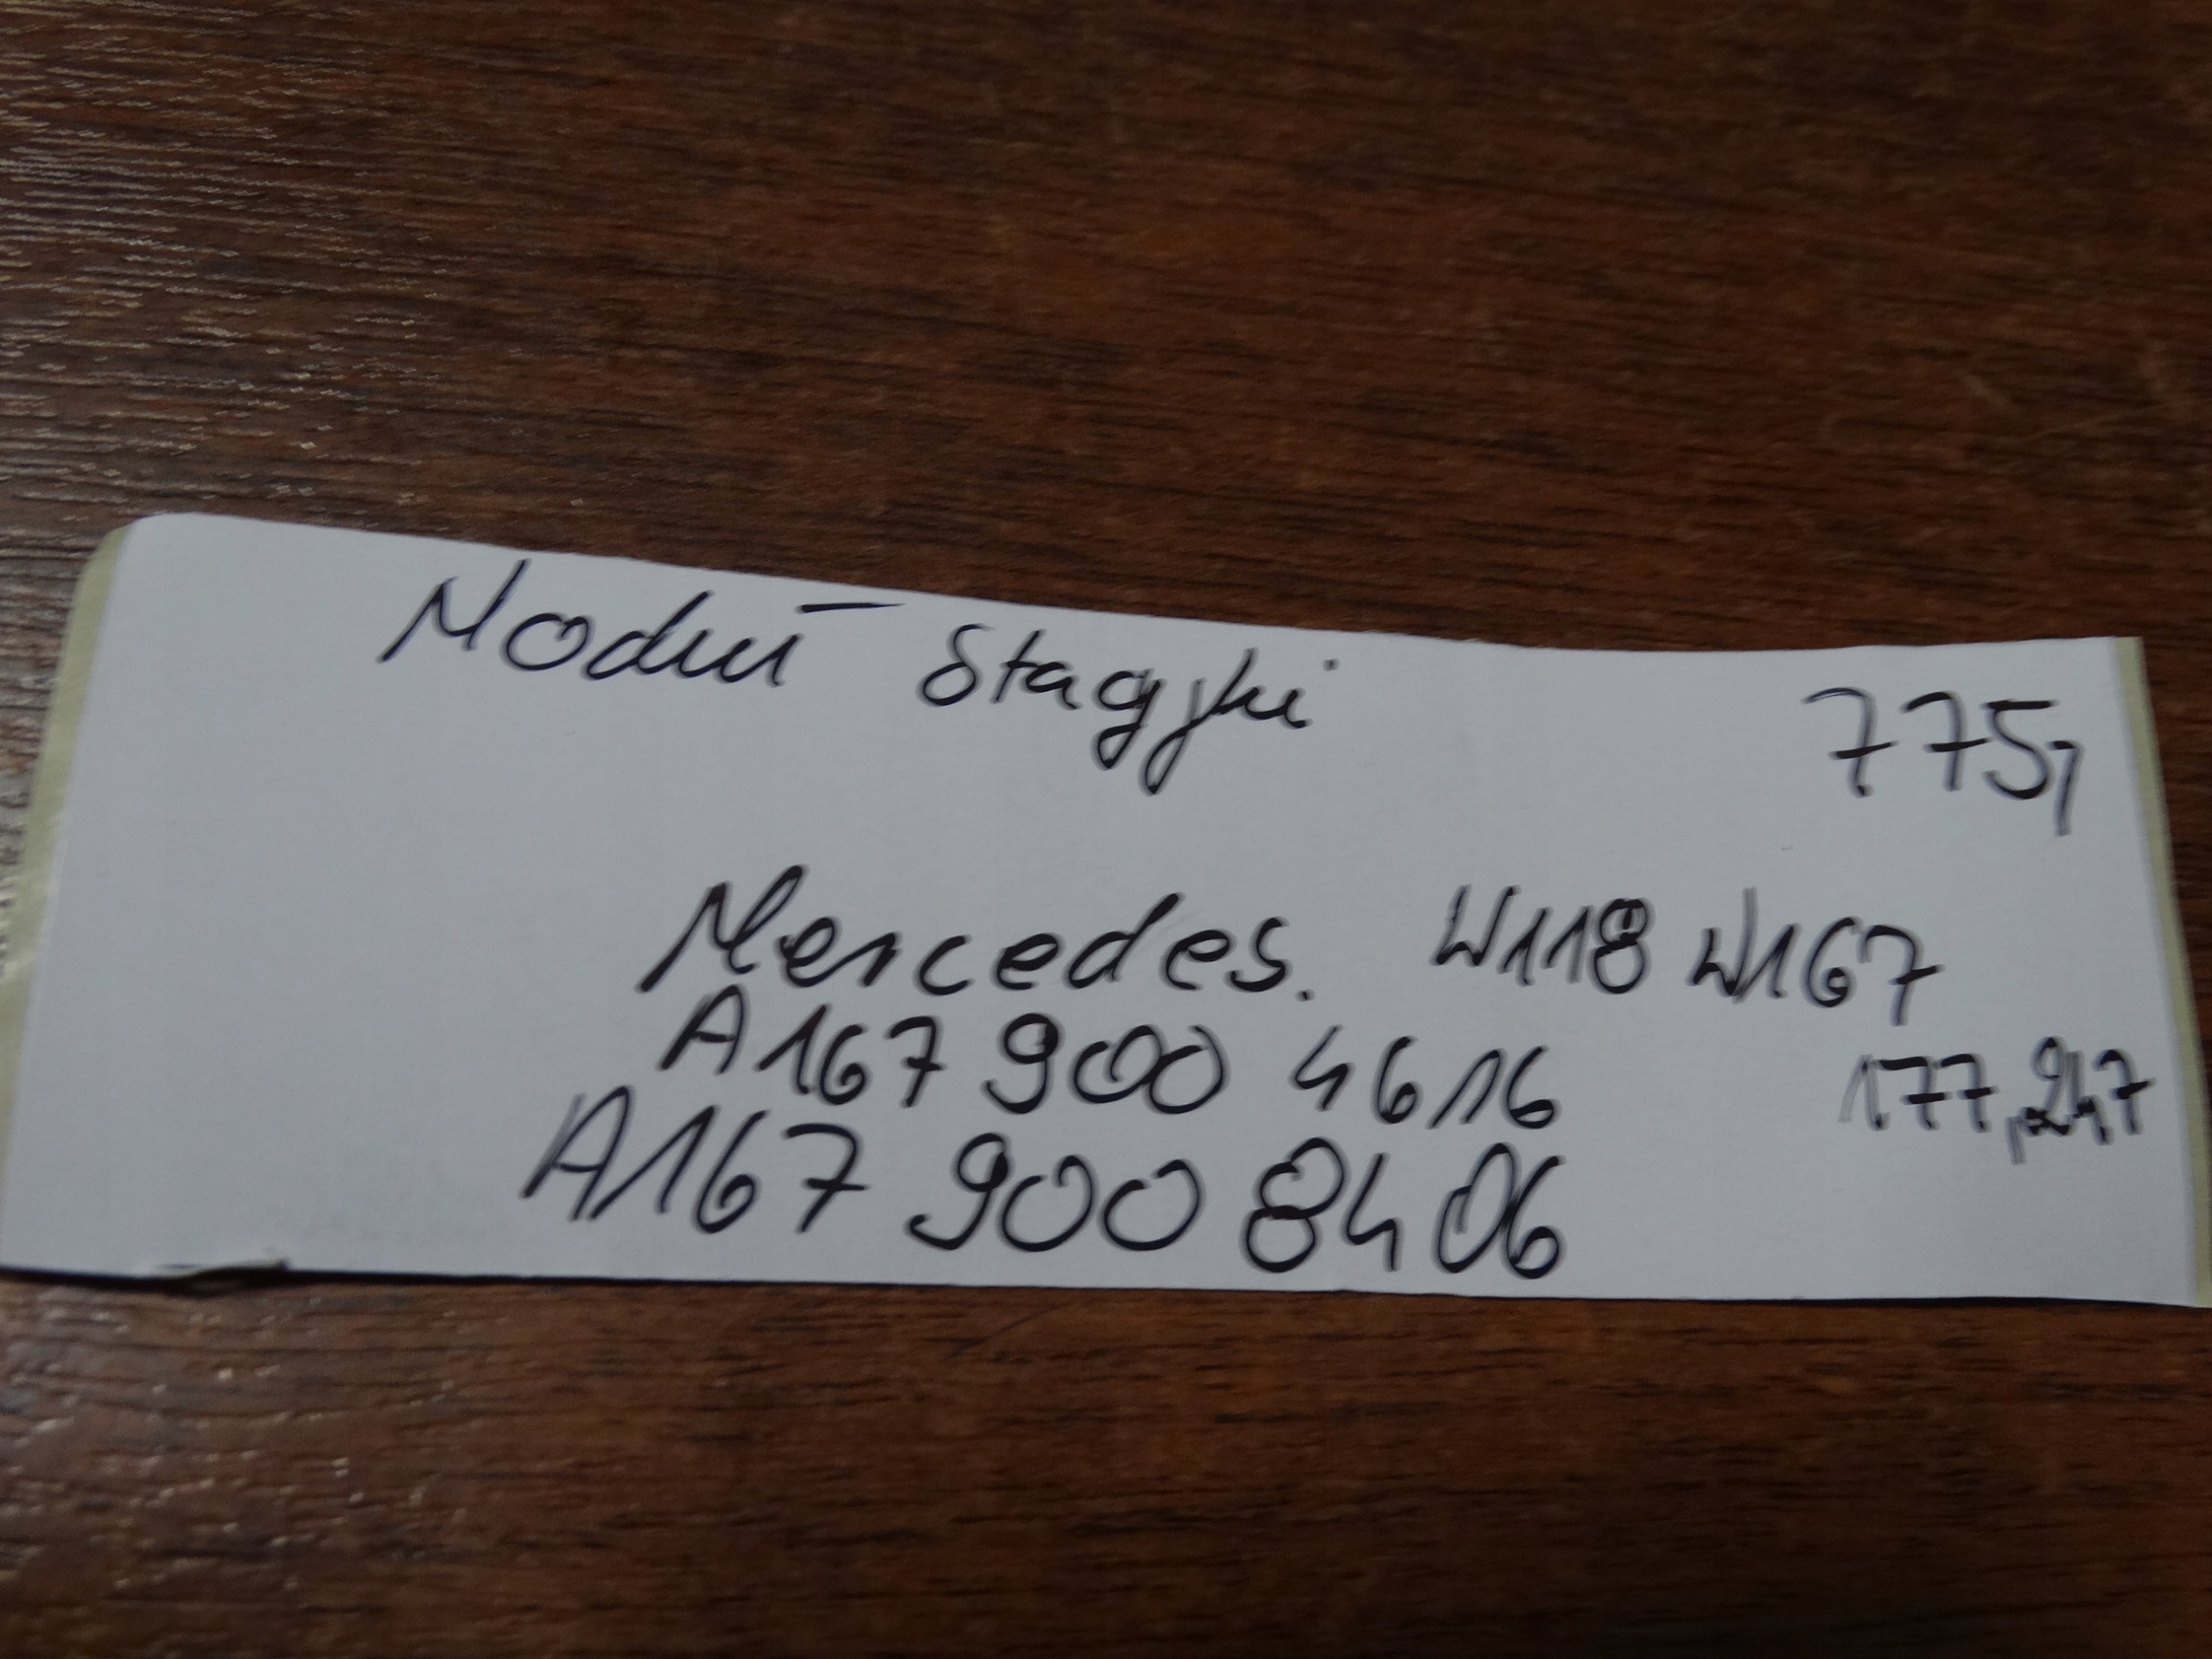 Moduł Stacyjki
775,
Mercedes. W118 W167
A167 900 4616 177,247
A167 900 8406